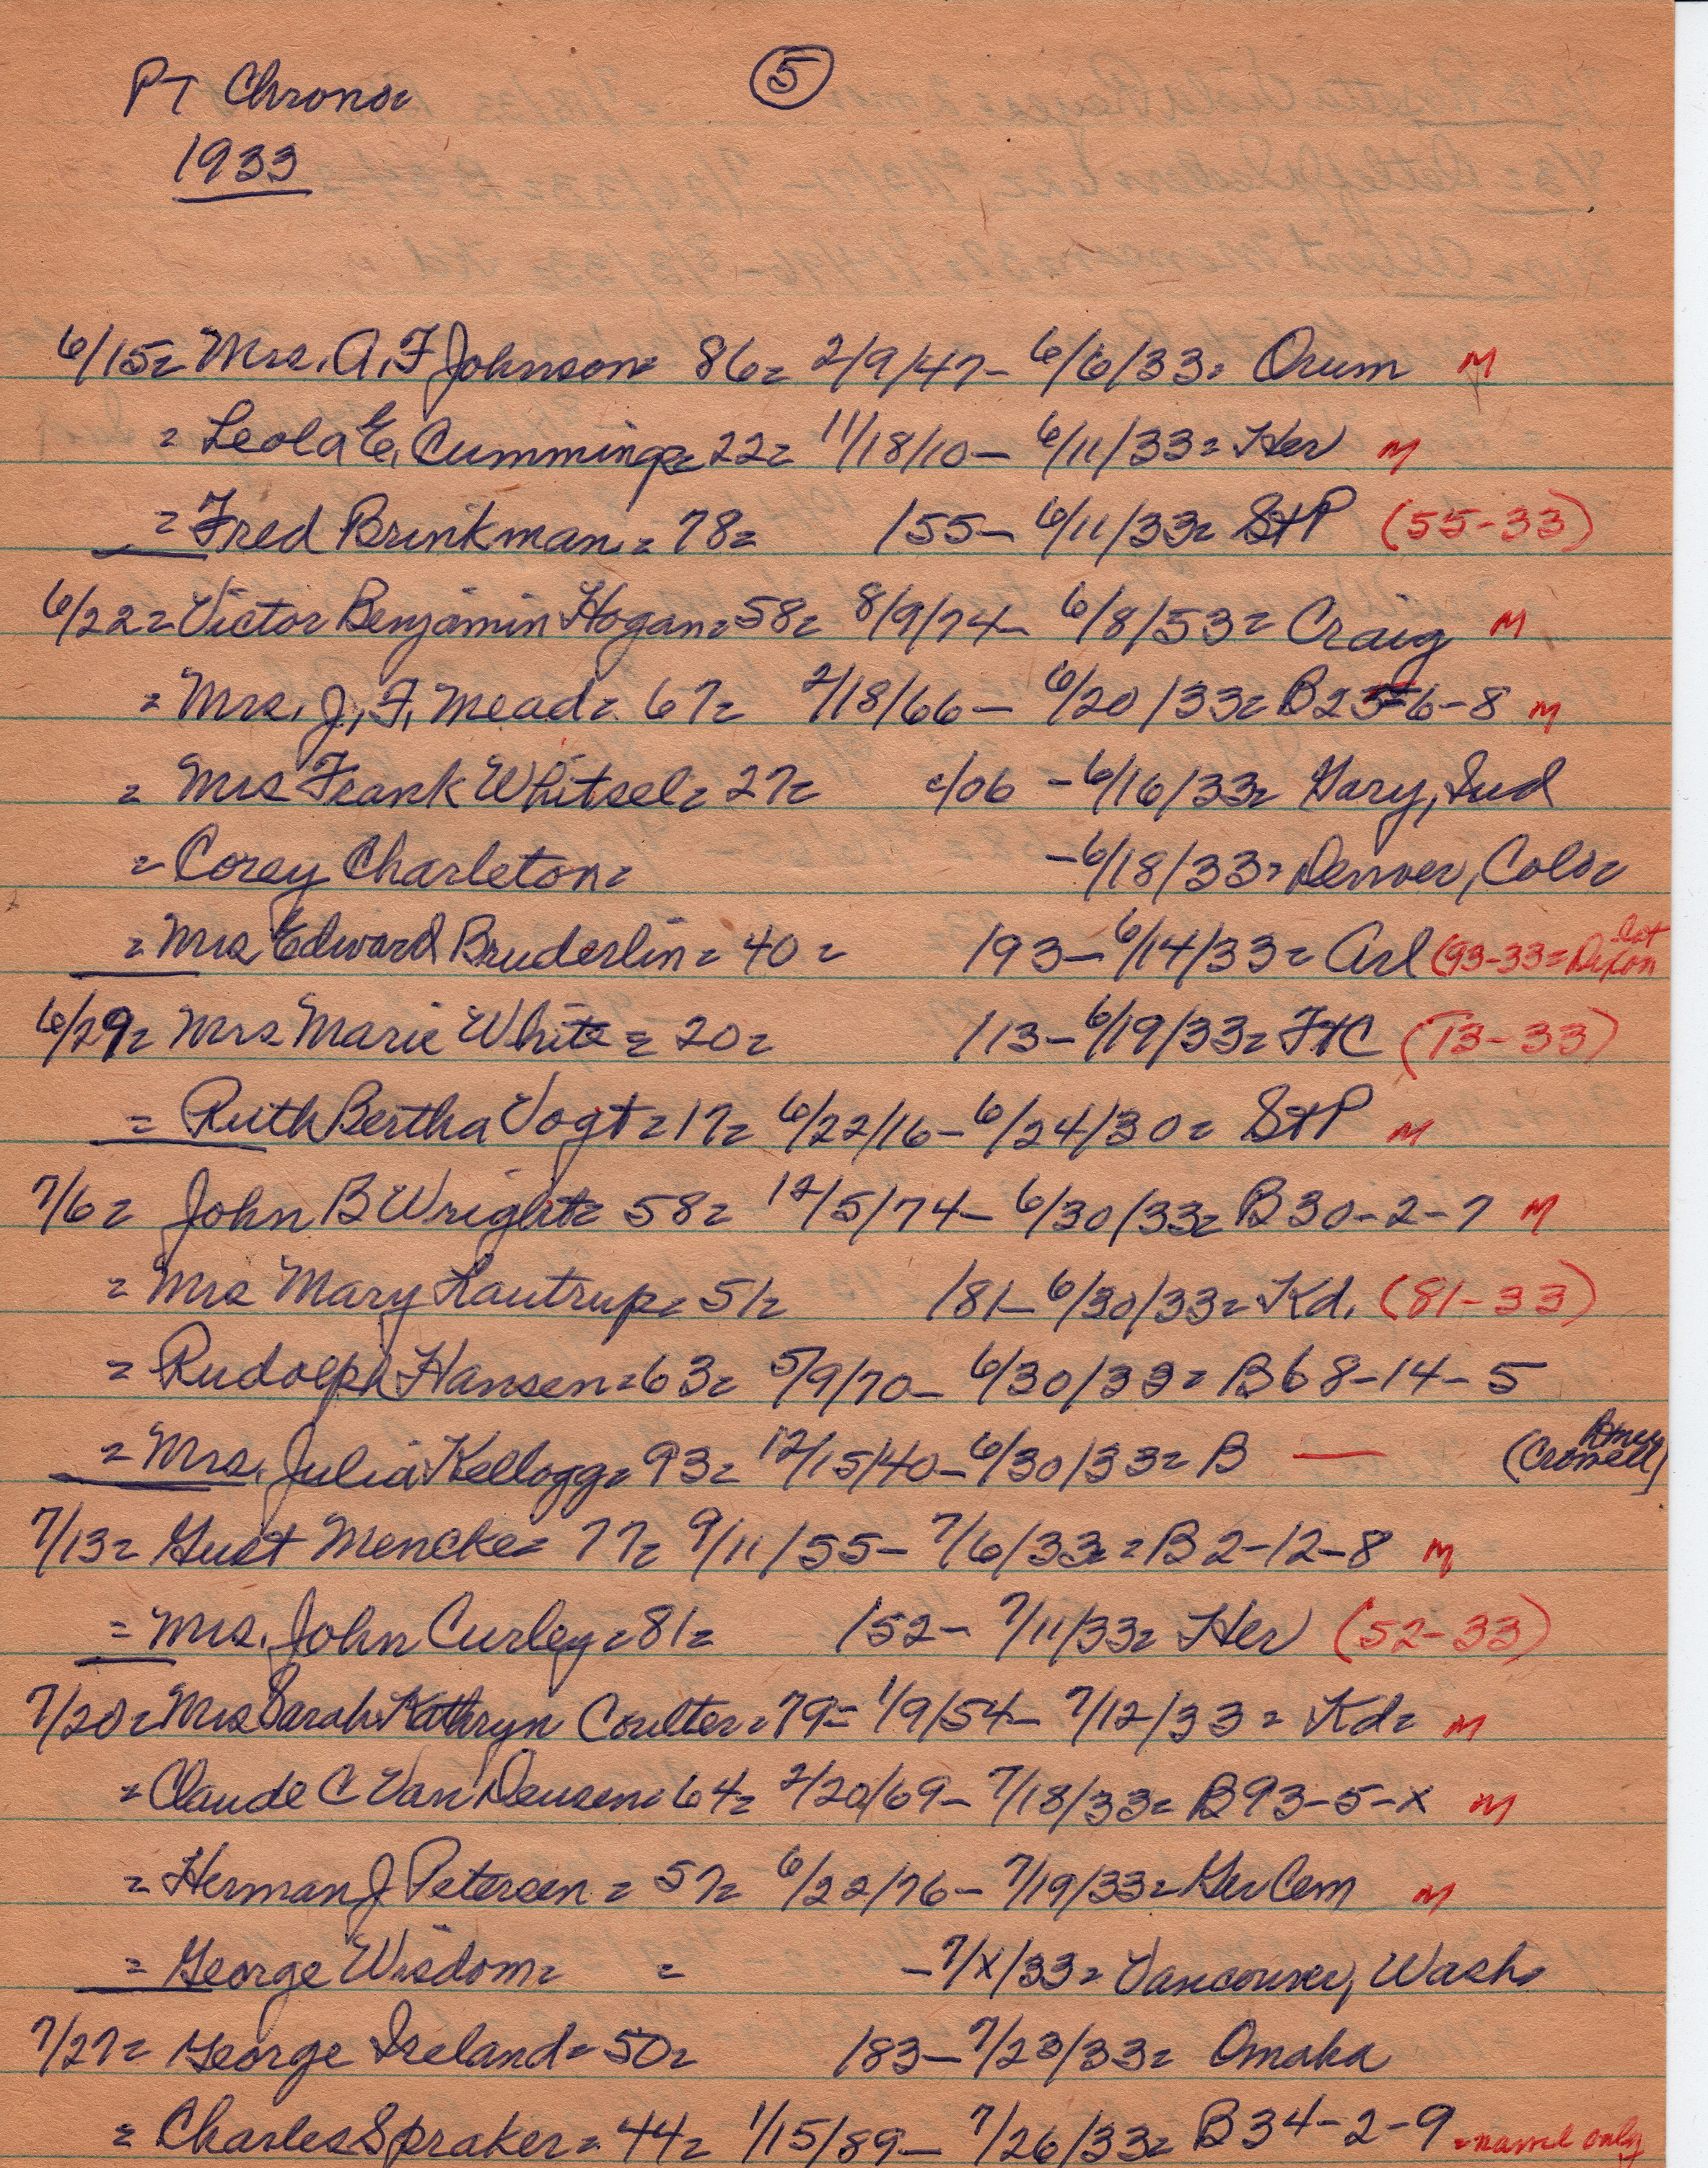 PT Chron=
5
1933
6/15= Mrs. A.F Johnson= 86= 2/9/47- 6/6/33= Orum M
= Leola E. Cumming= 22= 11/18/10- 6/11/33= Her M
= Fred Brinkman= 78= /55- 6/11/33= StP (55-33)
6/22= Victor Benjamin Hogan= 58= 8/9/74- 6/8/53= Craig M
= Mrs. J. F. Mead= 67= 2/18/66- 6/20/33= B 23-6-8 M
= Mrs Frank Whitsel= 27= c/06 -6/16/33= Gary, Ind
= Corey Charleton= -6/18/33= Denver, Colo=
= Mrs Edward Bruderlin= 40= /93- 6/14/33= Arl (93-33= Dixon
6/29= Mrs Marie White= 20= /13- 6/19/33= FtC (13-33)
= Ruth Bertha Vogt= 17= 6/22/16- 6/24/30= StP M
7/6= John B Wright= 58= 12/5/74- 6/30/33= B 30-2-7 M
= Mrs Mary Lautrup= 51= /81- 6/30/33= Kd. (81-33)
= Rudolph Hansen= 63= 5/9/70- 6/30/33= B 68-14-5
= Mrs. Julia Kellogg= 93= 12/15/40- 6/30/33= B — (Cromell)
7/13= Gust Mencke= 77= 9/11/55- 7/6/33= =B 2-12-8 M
= Mrs. John Curley= 81= /52- 7/11/33= Her (52-33)
7/20= Mrs Sarah Kathryn Coulter= 79= 1/9/54- 7/12/33= Kd= M
= Claude C Van Deusen= 64= 2/20/69- 7/18/33= B 93-5-x M
= Herman J Petersen= 57= 6/22/76- 7/19/33= Ger Cem M
= George Wisdom= = -7/x/33= Vancouver, Wash=
7/27= George Ireland= 50= /83- 7/23/33= Omaha
= Charles Spraker= 44= 1/15/89- 7/26/33= B 34-2-9 =named only